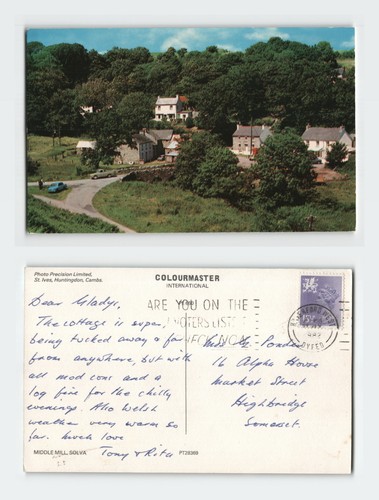 Photo Precision Limited,
St. Ives, Huntingdon, Cambs.
COLOURMASTER
INTERNATIONAL
ARE YOU ON THE
VOTERS LIST?
CHECK NOW
DYFED
Dear Gladys,
The cottage is super,
being tucked away & far
from anywhere, but with
all mod cons and a
log fire for the chilly
evenings. Also Welsh
weather very warm so
far. Much love
Tony & Rita
G. Ponder
16 Alpha House
Market Street
Highbridge
Somerset.
MIDDLE MILL, SOLVA
PT28369